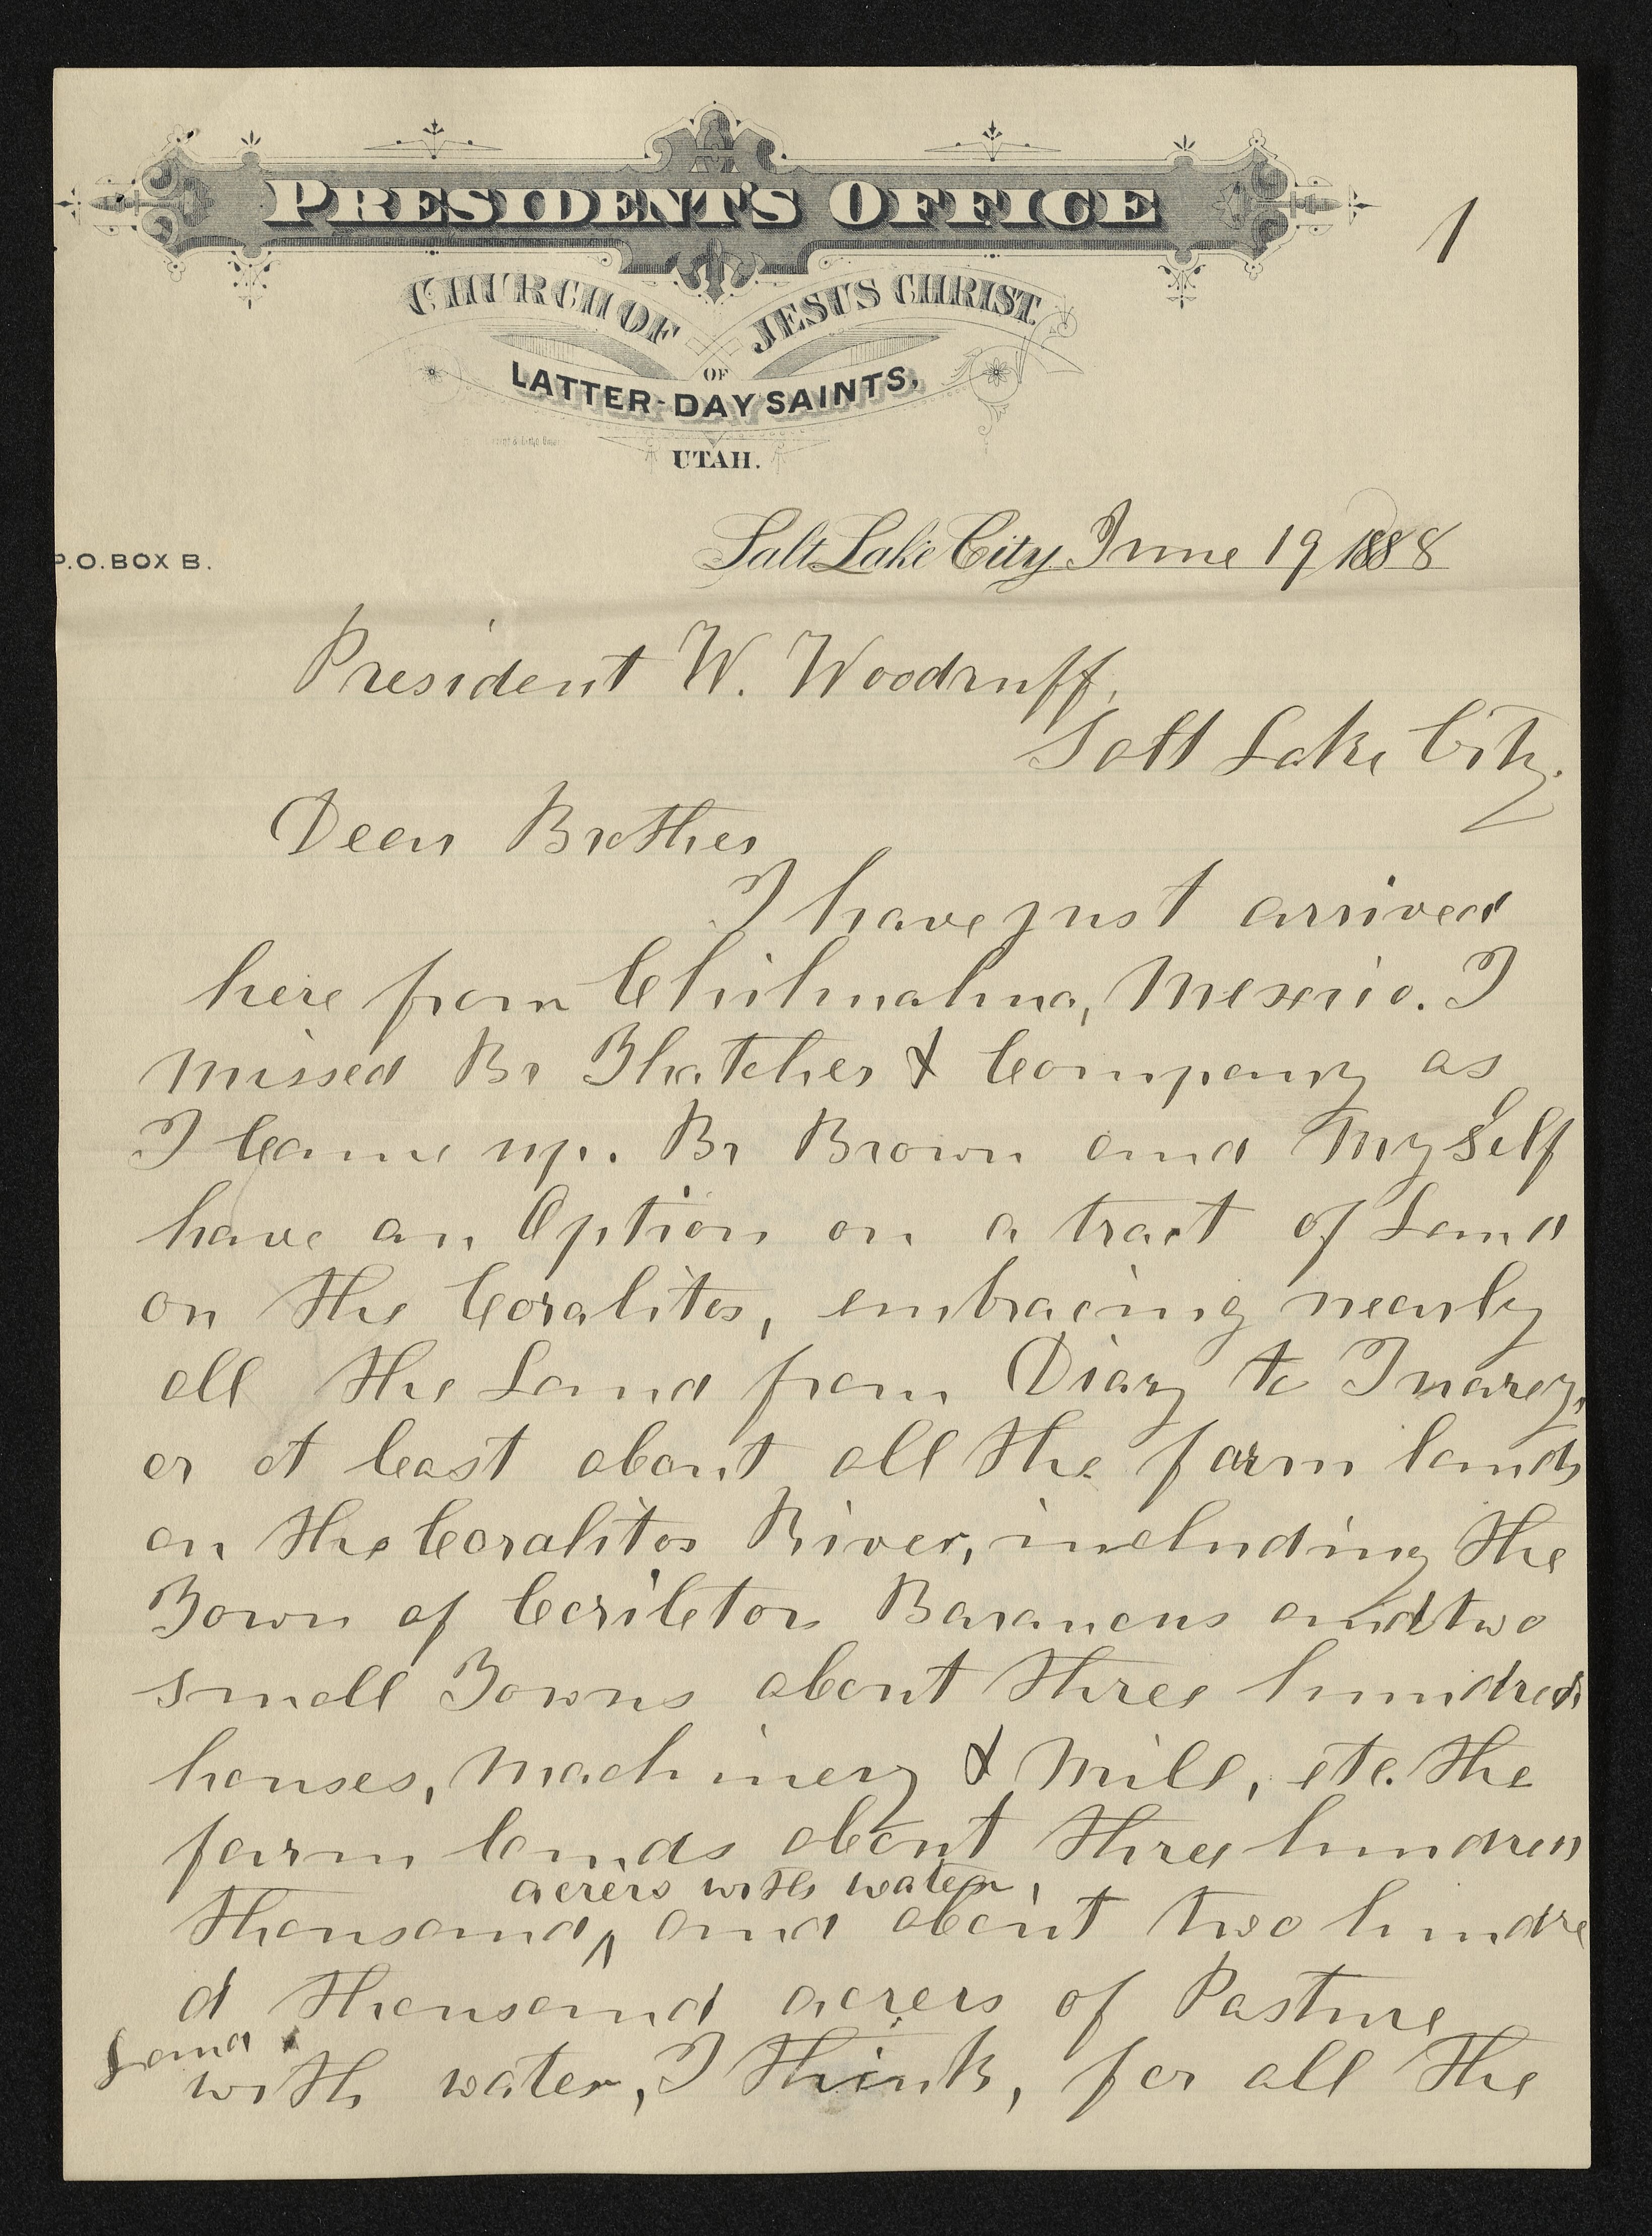 PRESIDENT'S OFFICE
1
CHURCH OF JESUS CHRIST
OF
LATTER-DAY SAINTS,
UTAH.
P.O. BOX B.
Salt Lake City June 19 1888
President W. Woodruff,
Salt Lake City.
Dear Brother
I have just arrived
here from Chihuahua, Mexico. I
missed Br Thatcher & Company as
I Came up. Br Brown and MySelf
have an Option on a tract of Land
on the Coralitos, embracing nearly
all the Land from Diaz to Juarez,
or at least about all the farm lands
on the Coralitos River, including the
Town of Barancus and two
small Towns about three hundred
houses, Machinery & Mill, etc. the
farm lands about three hundred
acrers with water,
thousand ^ and about two hundre
d thousand acrers of Pasture
Land
with water, I think, for all the